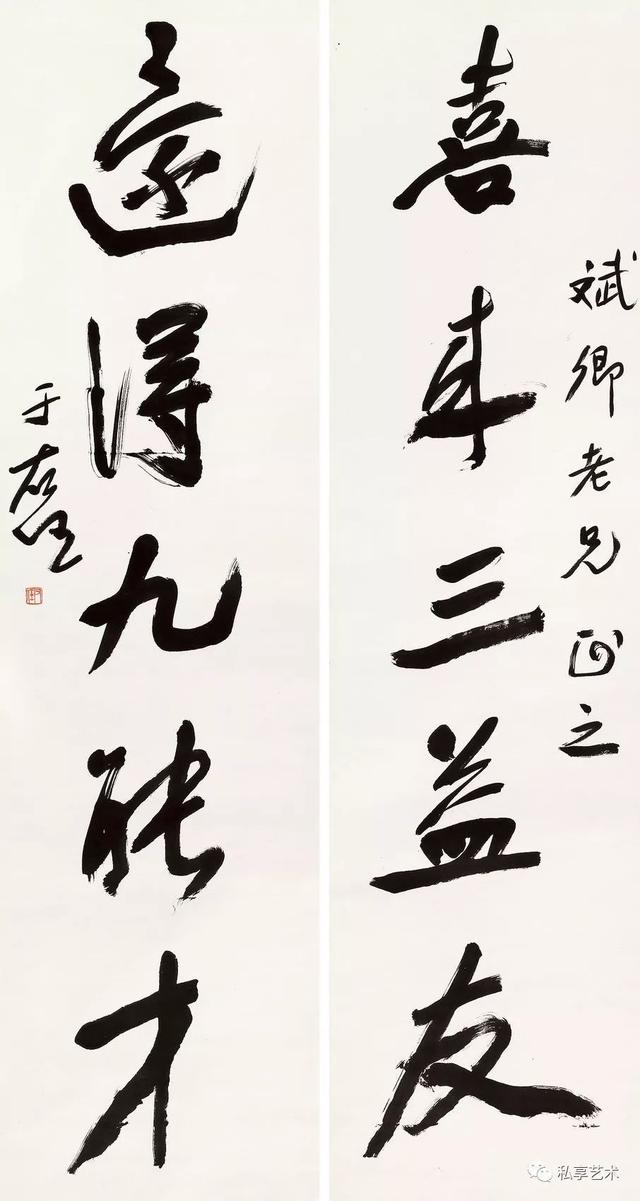 斌卿老兄正之
喜来三益友
還得九能才
于右任
私享艺术